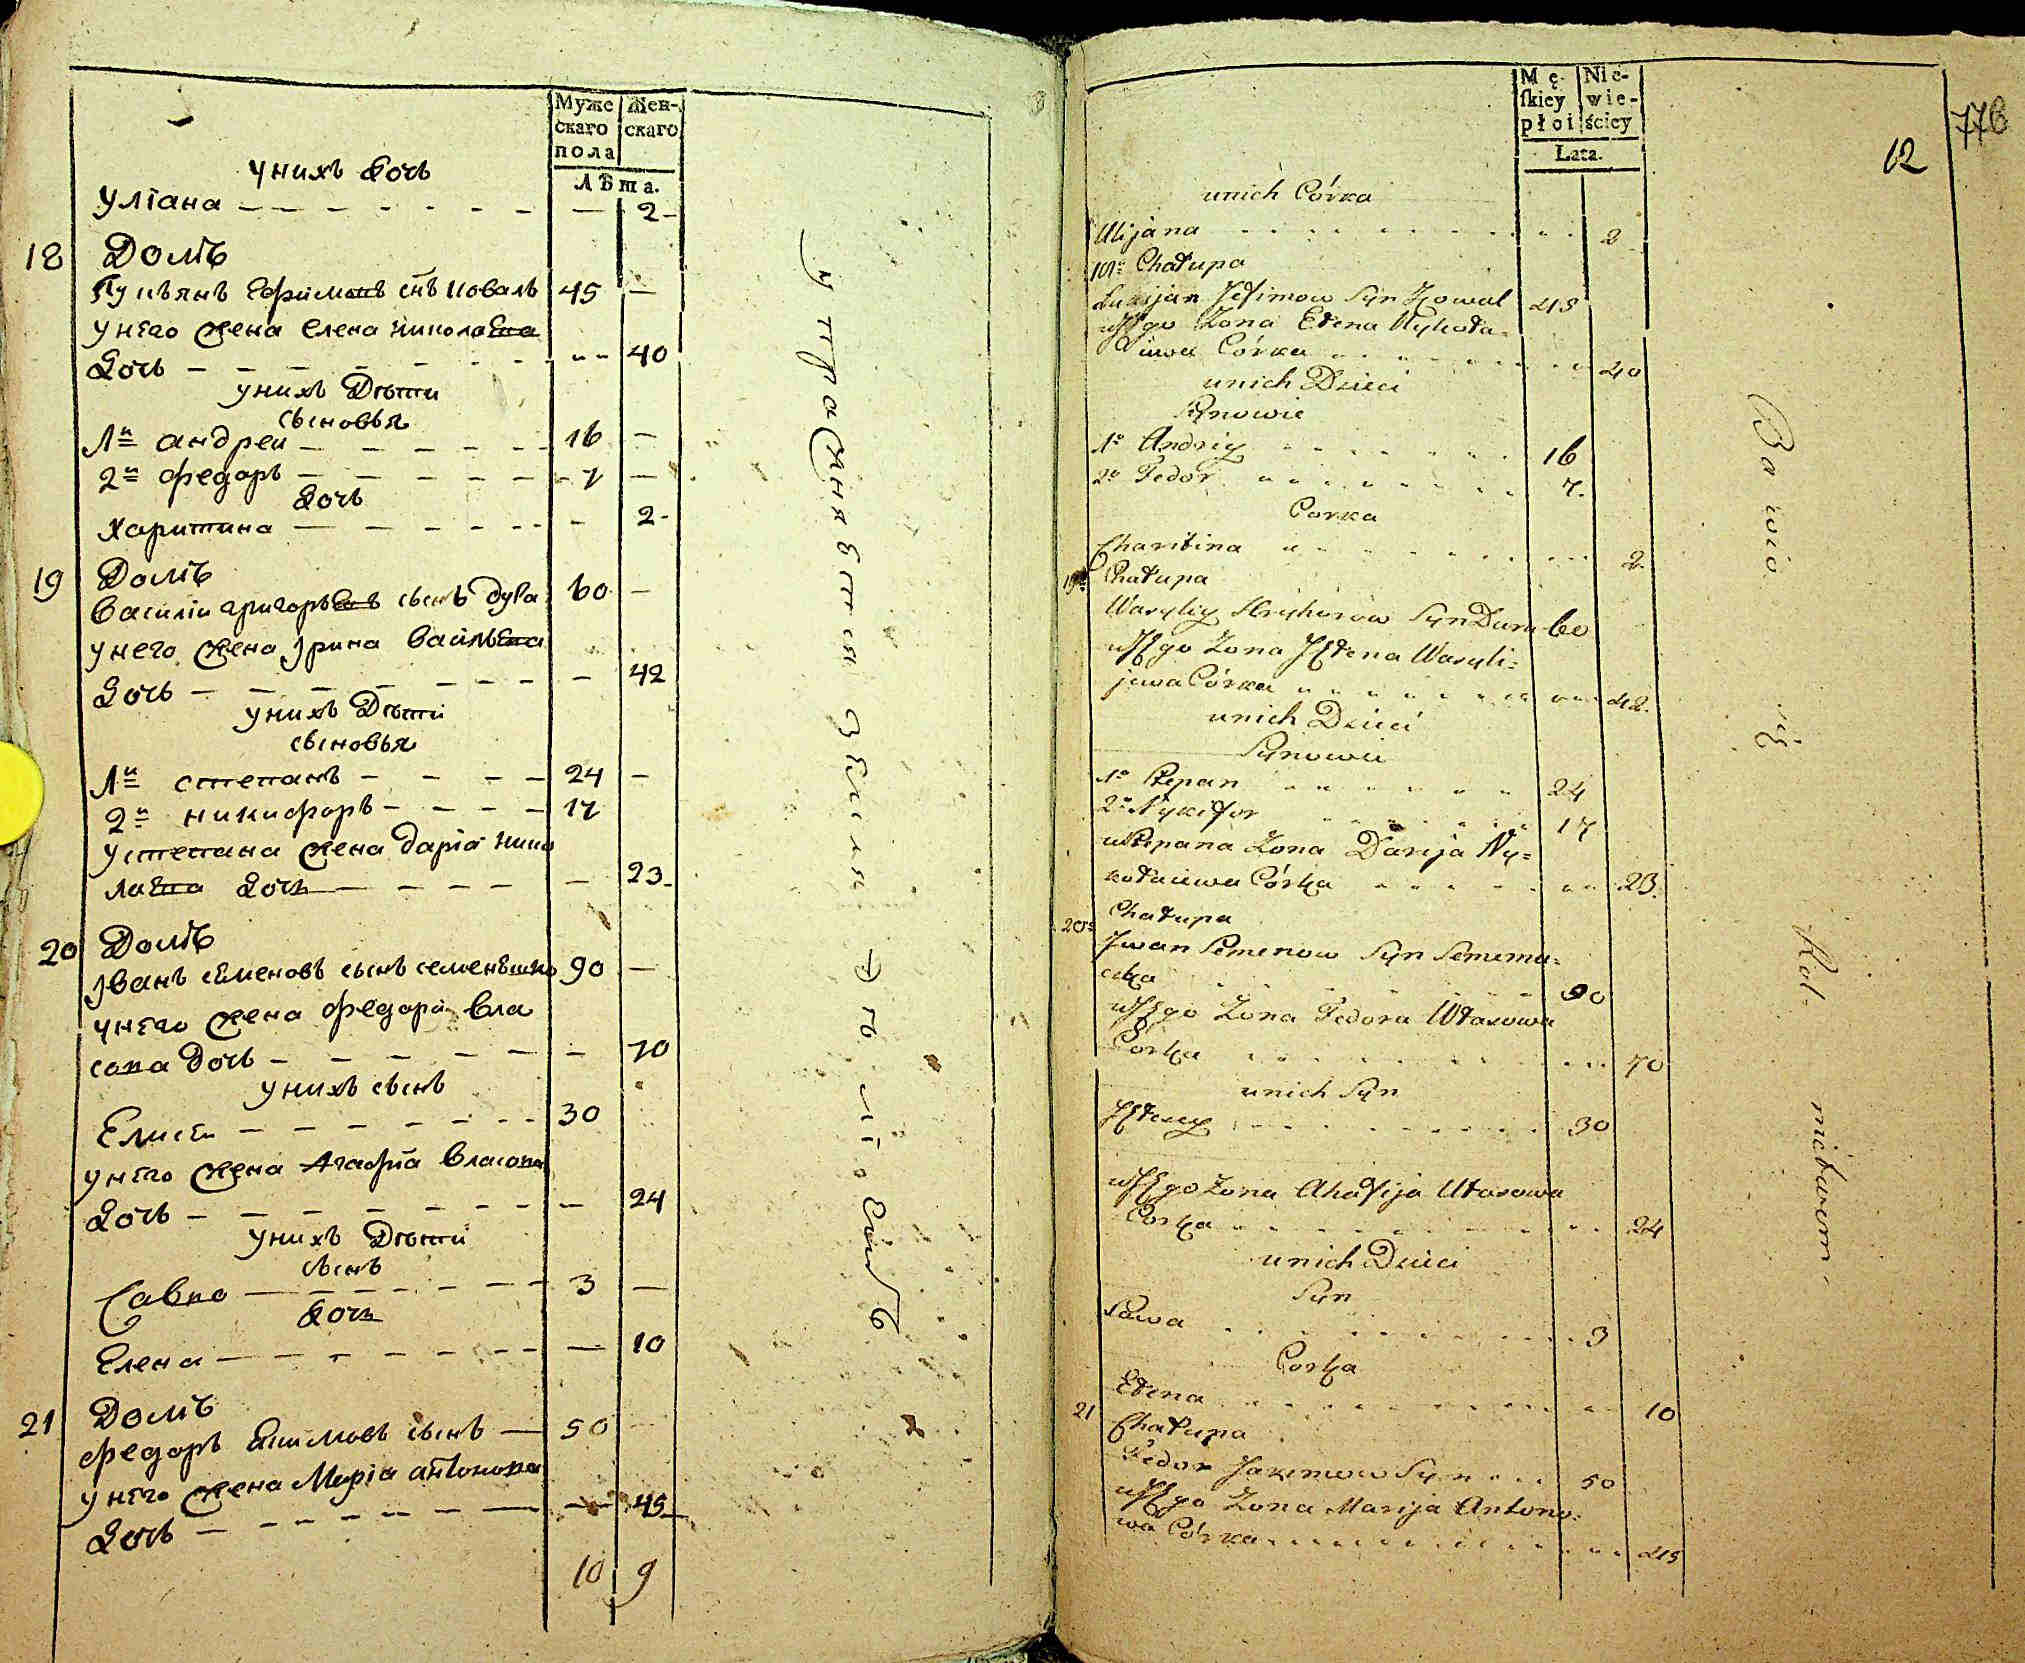 Муже
скаго
пола
Жен-
скаго
Лѣта.
унихъ дочь
Уліана — — — 2
18 Домъ
Лукъянъ Ефимовъ снъ коваль 45 —
унего жена Елена николаева
дочь — — — 40
унихъ Дѣти
сыновья
1й андреи — — — 16 —
2й федоръ — — — 7 —
дочь
харитина — — — 2
19 Домъ
василіи григорьевъ сынъ 60 —
унего жена Ірина васильева
дочь — — — 42
унихъ Дѣти
сыновья
1й степанъ — — — 24 —
2й никифоръ — — — 17
устепана жена дарія нико
лаева дочь — — — 23
20 Домъ
Іванъ семеновъ сынъ 90 —
унего жена федора вла
сова дочь — — — 70
унихъ сынъ
Елисеи — — — 30
унего жена Агафія власова
дочь — — — 24
унихъ Дѣти
сынъ
Савка — — — 3 —
дочь
Елена — — — 10
21 Домъ
федоръ Екимовъ сынъ — 50
унего жена Марія антонова
дочь — — — 45
10 9
упражняется землед
Mę-
skiey
płoi
Nie-
wie-
ściey
Lata.
776
12
unich Córka
Ulijana 2
18o Chałupa
Łukijan Jefimow Syn Kowal 45
u Jego Zona Ełena Nykoła-
iewa Córka 40
unich Dzieci
Synowie
1o Andriy 16
2o Fedor 7
Corka
Charitina 2
19o Chałupa
Wasyliy Hryhorow Syn 60
u Jego Zona Wasyli-
jewa Córka 42
unich Dzieci
Synowie
1o Stepan 24
2o Nykifor 17
u Stepana Zona Darija Ny-
kołaiewa Córka 23
20o Chałupa
Jwan Semenow Syn
90
u Jego Zona Fedora Własowa
Córka 70
unich Syn
30
u Jego Zona Ahafija Własowa
Corka 24
unich Dzieci
Syn
Sawa 3
Corka
Ełena 10
21 Chałupa
Fedor Jakimow Syn 50
u Jego Zona Marija Antono-
wa Córka 45
Bawio się Rolnictwem